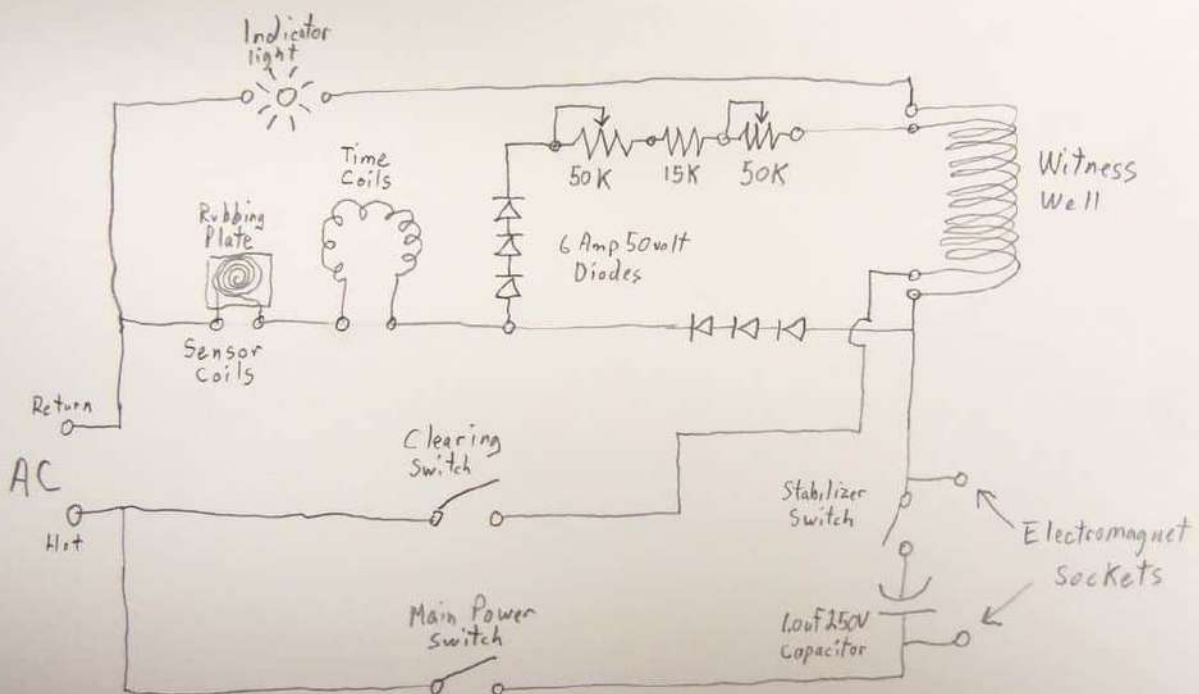 Indicator
light
Time
Coils
50K
15K
50K
Witness
Well
Rubbing
Plate
6 Amp 50volt
Diodes
Sensor
Coils
Return
AC
Hot
Clearing
Switch
Stabilizer
Switch
Electromagnet
Sockets
Main Power
Switch
1.0uf 250V
Capacitor